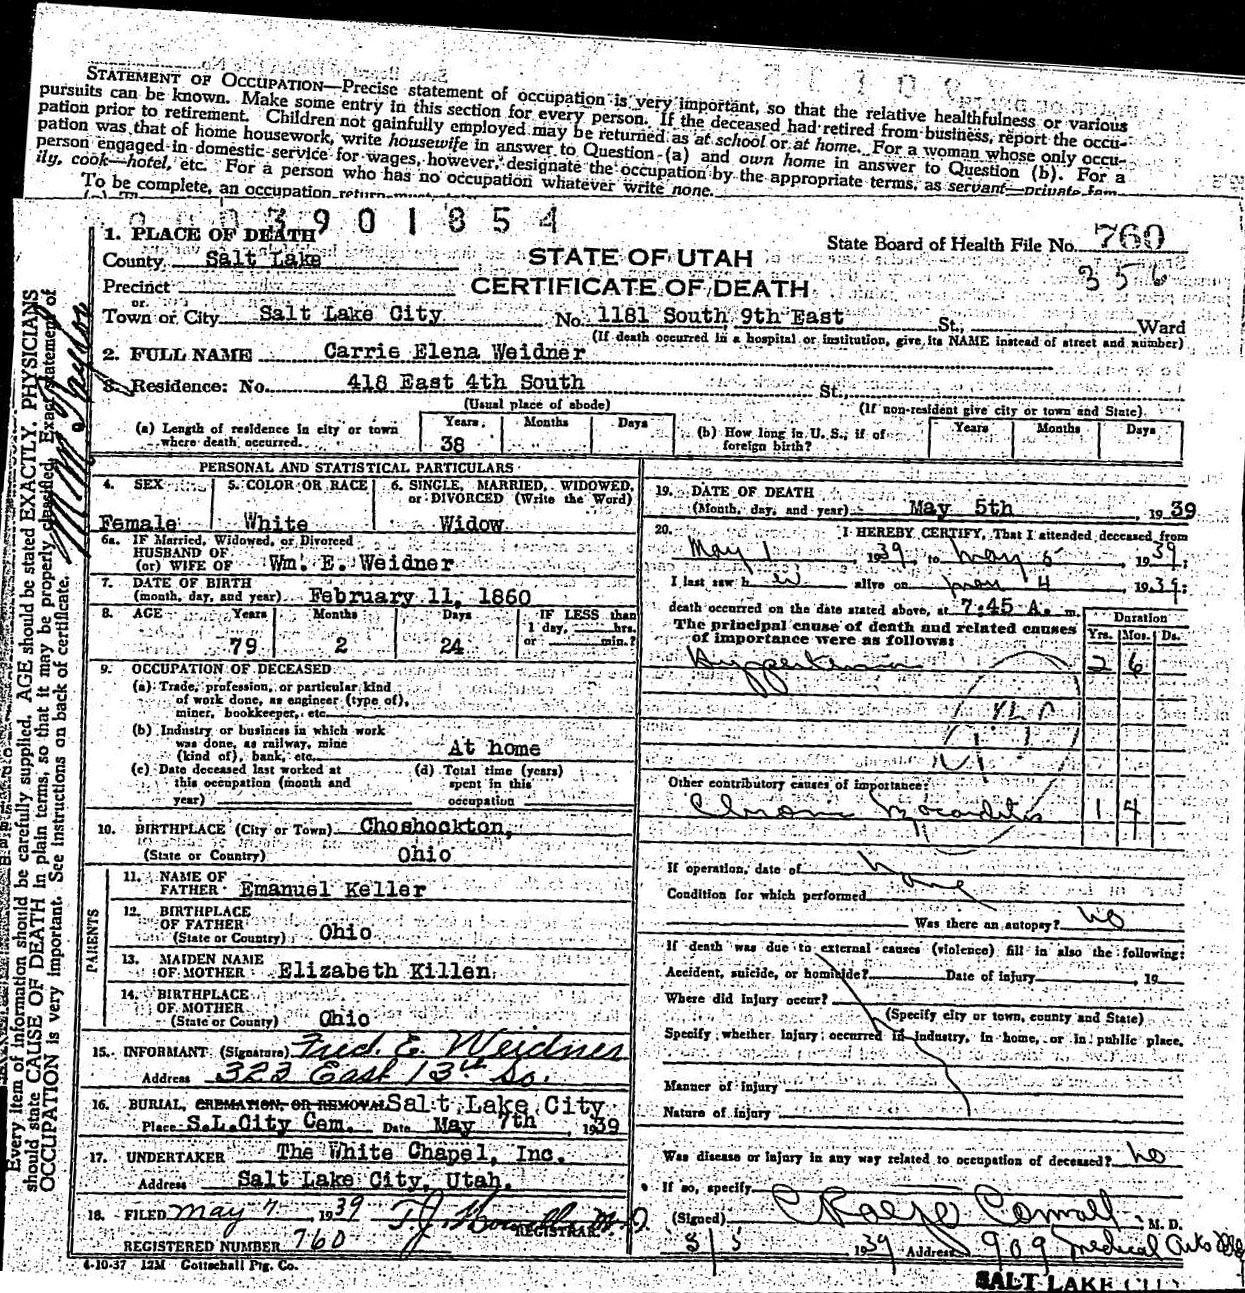 STATEMENT OF OCCUPATION—Precise statement of occupation is very important, so that the relative healthfulness or various
pursuits can be known. Make some entry in this section for every person. If the deceased had retired from business, report the occu-
pation prior to retirement. Children not gainfully employed may be returned as at school or at home. For a woman whose only occu-
pation was that of home housework, write housewife in answer to Question (a) and own home in answer to Question (b). For a
person engaged in domestic service for wages, however, designate the occupation by the appropriate terms, as servant—private fam-
ily, cook—hotel, etc. For a person who has no occupation whatever write none.
To be complete, an occupation return
3901854
1. PLACE OF DEATH
County Salt Lake
Precinct
or
Town or City Salt Lake City
STATE OF UTAH
CERTIFICATE OF DEATH
State Board of Health File No. 760
356
No. 1181 South 9th East St., Ward
(If death occurred in a hospital or institution, give its NAME instead of street and number)
2. FULL NAME Carrie Elena Weidner
3. Residence: No. 418 East 4th South St.,
(Usual place of abode) (If non-resident give city or town and State)
(a) Length of residence in city or town where death occurred. Years 38 Months Days
(b) How long in U. S., if of foreign birth? Years Months Days
PERSONAL AND STATISTICAL PARTICULARS
4. SEX Female
5. COLOR OR RACE White
6. SINGLE, MARRIED, WIDOWED, or DIVORCED (Write the Word) Widow
6a. IF Married, Widowed, or Divorced
HUSBAND OF
(or) WIFE OF Wm. E. Weidner
7. DATE OF BIRTH
(month, day, and year) February 11, 1860
8. AGE Years 79 Months 2 Days 24 IF LESS than 1 day, hrs. or min.?
9. OCCUPATION OF DECEASED
(a) Trade, profession, or particular kind
of work done, as engineer (type of),
miner, bookkeeper, etc.
(b) Industry or business in which work
was done, as railway, mine
(kind of), bank, etc. At home
(c) Date deceased last worked at
this occupation (month and
year)
(d) Total time (years)
spent in this
occupation
10. BIRTHPLACE (City or Town) Choshockton,
(State or Country) Ohio
PARENTS
11. NAME OF
FATHER Emanuel Keller
12. BIRTHPLACE
OF FATHER
(State or Country) Ohio
13. MAIDEN NAME
OF MOTHER Elizabeth Killen
14. BIRTHPLACE
OF MOTHER
(State or County) Ohio
15. INFORMANT (Signature) Fred. E. Weidner
Address 323 East 13th So.
16. BURIAL, CREMATION, OR REMOVAL Salt Lake City
Place S.L.City Cem. Date May 7th 1939
17. UNDERTAKER The White Chapel, Inc.
Address Salt Lake City, Utah.
18. FILED May 7 1939 T.J. Howells M.D.
REGISTRAR.
REGISTERED NUMBER 760
4-10-37 12M Gottschall Ptg. Co.
19. DATE OF DEATH
(Month, day, and year) May 5th 1939
20. I HEREBY CERTIFY, That I attended deceased from
May 1 1939, to May 5 1939;
I last saw her alive on May 4 1939;
death occurred on the date stated above, at 7:45 A. m.
The principal cause of death and related causes
of importance were as follows:
Duration
Yrs. Mos. Ds.
Hyppertension 2 6
Other contributory causes of importance:
Chronic Myocarditis 1 4
If operation, date of None
Condition for which performed
Was there an autopsy? No
If death was due to external causes (violence) fill in also the following:
Accident, suicide, or homicide? Date of injury , 19
Where did injury occur?
(Specify city or town, county and State)
Specify whether injury occurred in industry, in home, or in public place.
Manner of injury
Nature of injury
Was disease or injury in any way related to occupation of deceased? No
If so, specify
(Signed) M. D.
5/5 1939 Address 909 Medical Arts Bldg
SALT LAKE CITY
Every item of information should be carefully supplied. AGE should be stated EXACTLY. PHYSICIANS
should state CAUSE OF DEATH in plain terms, so that it may be properly classified. Exact statement of
OCCUPATION is very important. See instructions on back of certificate.